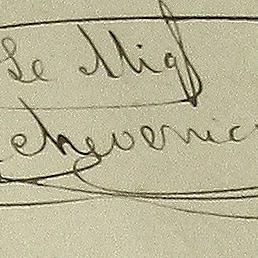 Le Mig
chevernic